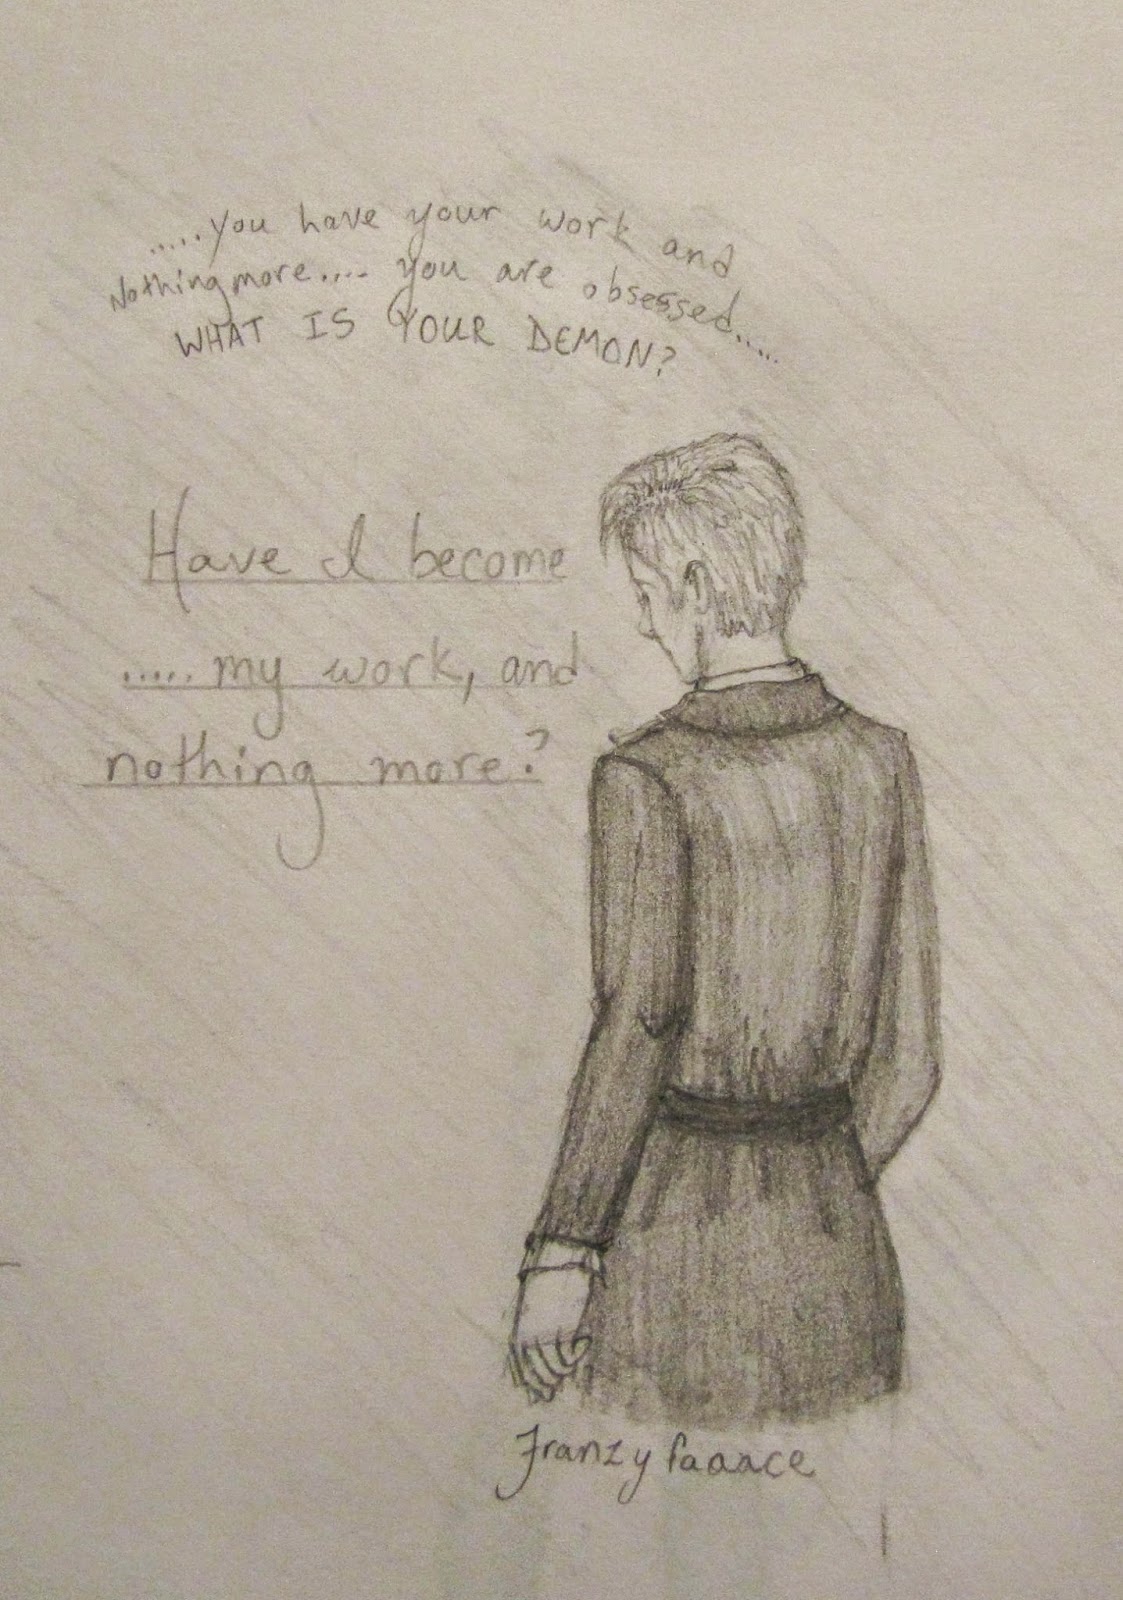 .....you have your work and
Nothing more.... you are obsessed.....
WHAT IS YOUR DEMON?
Have I become
..... my work, and
nothing more?
Franzy